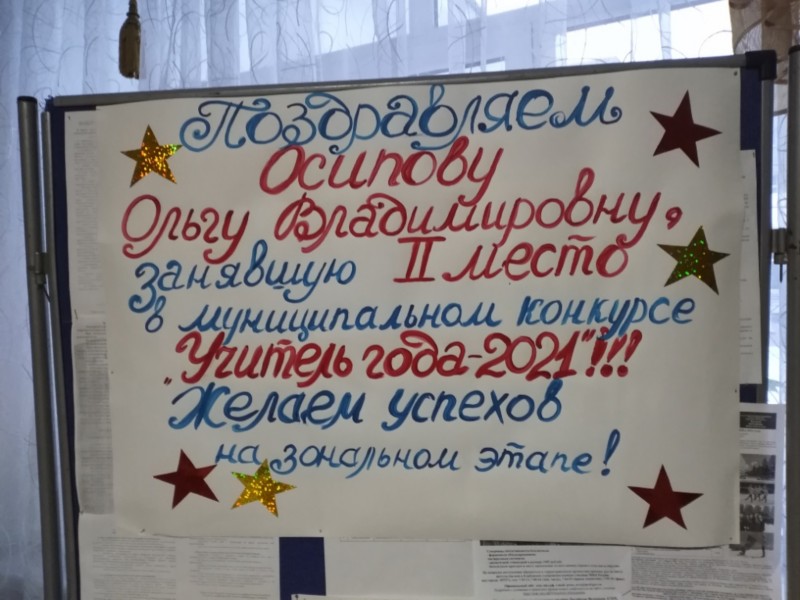 Поздравляем
Осипову
Ольгу Владимировну,
занявшую II место
в муниципальном конкурсе
„Учитель года-2021"!!!
Желаем успехов
на зональном этапе!